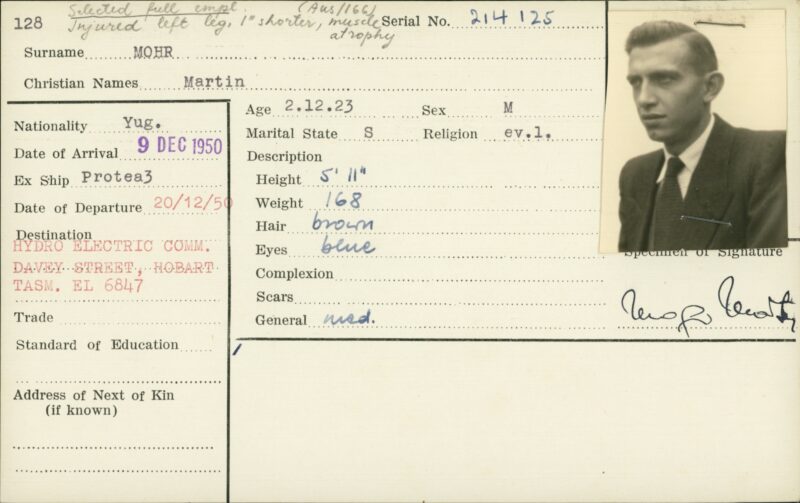 Selected full empl. (Aus/166)
128 Injured left leg, 1" shorter, muscle atrophy
Serial No. 214 125
Surname MOHR
Christian Names Martin
Nationality Yug.
Date of Arrival 9 DEC 1950
Ex Ship Protea3
Date of Departure 20/12/50
Destination
HYDRO ELECTRIC COMM.
DAVEY STREET, HOBART
TASM. EL 6847
Trade
Standard of Education
Address of Next of Kin
(if known)
Age 2.12.23 Sex M
Marital State S Religion ev.l.
Description
Height 5' 11"
Weight 168
Hair brown
Eyes blue
Complexion
Scars
General med.
Specimen of Signature